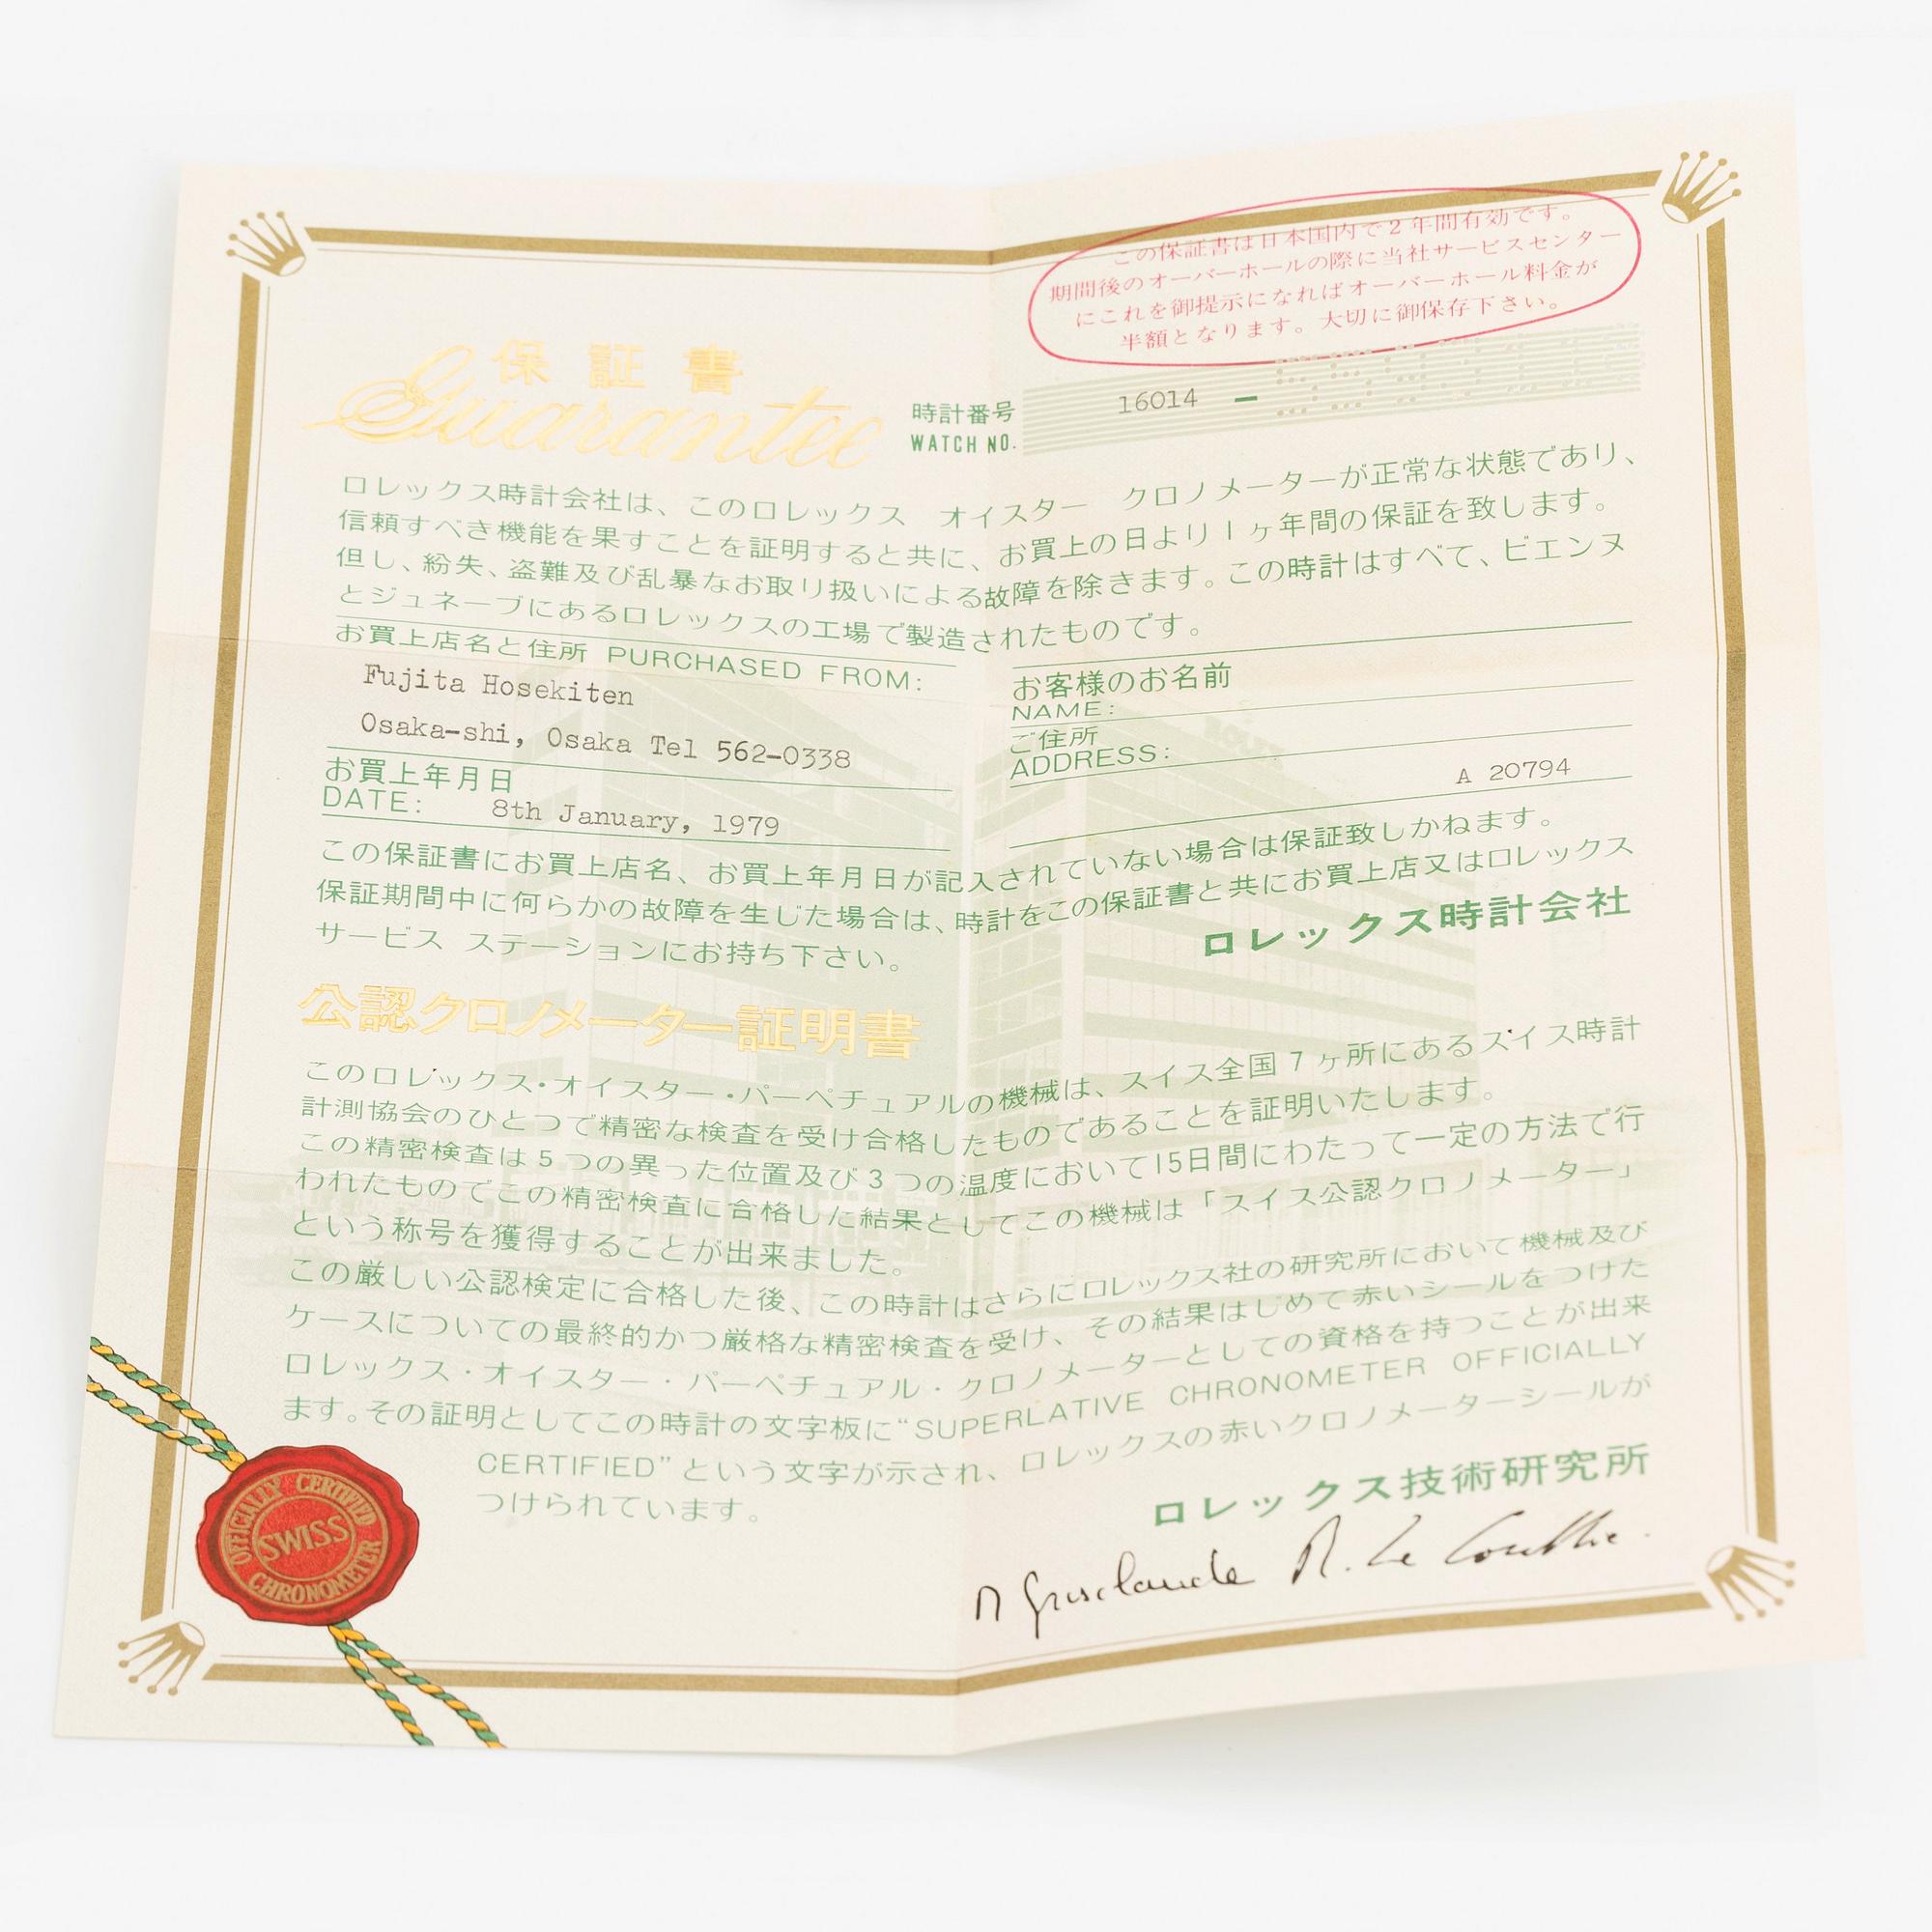 この保証書は日本国内で2年間有効です。
期間後のオーバーホールの際に当社サービスセンター
にこれを御提示になればオーバーホール料金が
半額となります。大切に御保存下さい。
保証書
Guarantee
時計番号
WATCH NO.
16014 –
ロレックス時計会社は、このロレックス オイスター クロノメーターが正常な状態であり、
信頼すべき機能を果すことを証明すると共に、お買上の日より1ヶ年間の保証を致します。
但し、紛失、盗難及び乱暴なお取り扱いによる故障を除きます。この時計はすべて、ビエンヌ
とジュネーブにあるロレックスの工場で製造されたものです。
お買上店名と住所 PURCHASED FROM:
Fujita Hosekiten
Osaka-shi, Osaka Tel 562-0338
お買上年月日
DATE: 8th January, 1979
お客様のお名前
NAME:
ご住所
ADDRESS:
A 20794
この保証書にお買上店名、お買上年月日が記入されていない場合は保証致しかねます。
保証期間中に何らかの故障を生じた場合は、時計をこの保証書と共にお買上店又はロレックス
サービス ステーションにお持ち下さい。
ロレックス時計会社
公認クロノメーター証明書
このロレックス・オイスター・パーペチュアルの機械は、スイス全国7ヶ所にあるスイス時計
計測協会のひとつで精密な検査を受け合格したものであることを証明いたします。
この精密検査は5つの異った位置及び3つの温度において15日間にわたって一定の方法で行
われたものでこの精密検査に合格した結果としてこの機械は「スイス公認クロノメーター」
という称号を獲得することが出来ました。
この厳しい公認検定に合格した後、この時計はさらにロレックス社の研究所において機械及び
ケースについての最終的かつ厳格な精密検査を受け、その結果はじめて赤いシールをつけた
ロレックス・オイスター・パーペチュアル・クロノメーターとしての資格を持つことが出来
ます。その証明としてこの時計の文字板に“SUPERLATIVE CHRONOMETER OFFICIALLY
CERTIFIED”という文字が示され、ロレックスの赤いクロノメーターシールが
つけられています。
ロレックス技術研究所
OFFICIALLY CERTIFIED
SWISS
CHRONOMETER